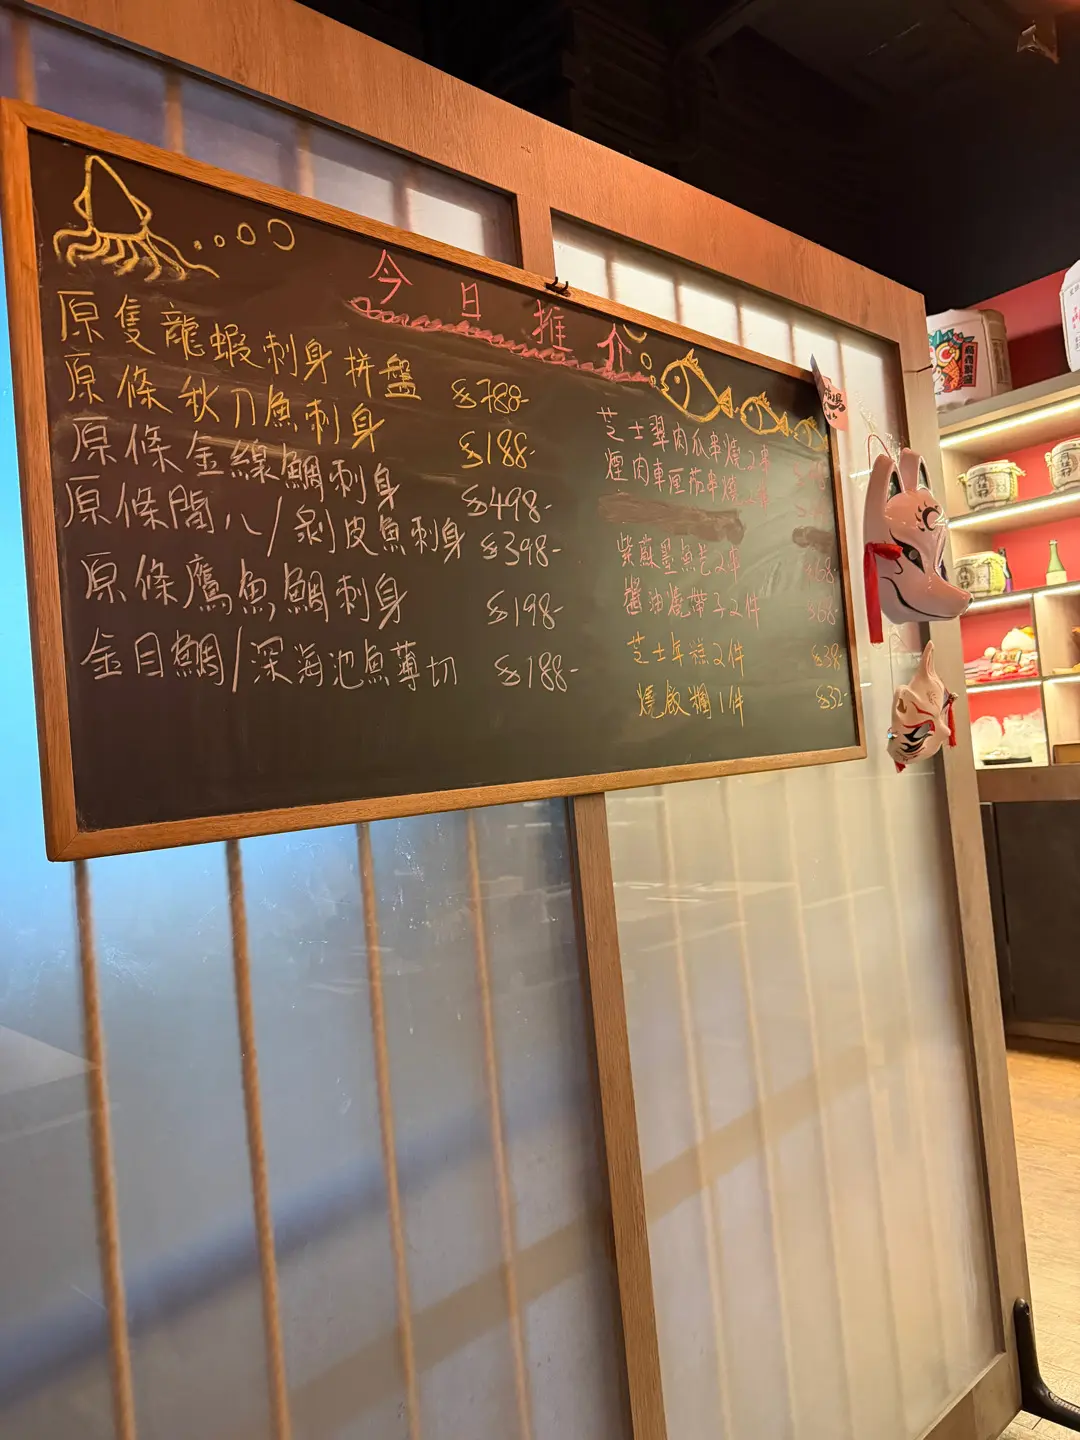 今日推介
原隻龍蝦刺身拼盤 $788-
原條秋刀魚刺身 $188-
原條金線鯛刺身 $498-
原條間八/剝皮魚刺身 $398-
原條鷹魚鯛刺身 $198-
金目鯛/深海池魚薄切 $188-
芝士翠肉瓜串燒2串
煙肉車厘茄串燒2串
紫菜墨魚卷2串 $68-
醬油燒帶子2件 $68-
芝士年糕2件 $38-
燒飯糰1件 $32-